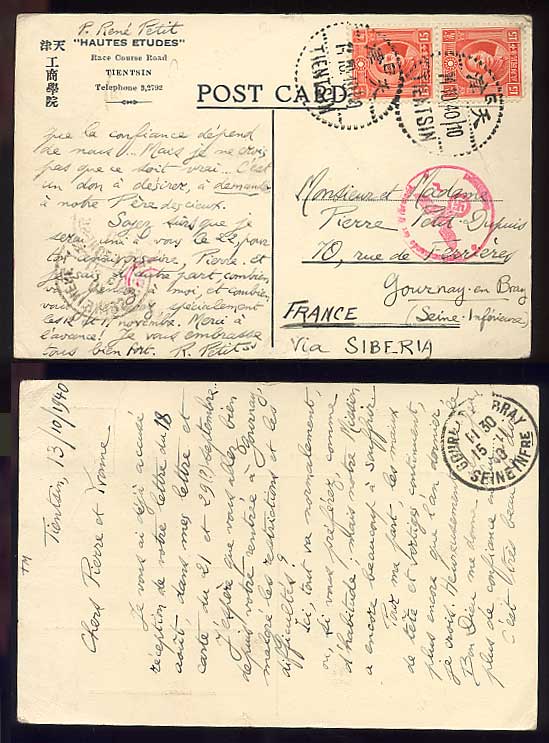 P. René Petit
"HAUTES ETUDES"
Race Course Road
TIENTSIN
Telephone 3,2792
天津
工商學院
POST CARD
TIENTSIN
TIENTSIN
15
15
que la confiance dépend
de nous !... Mais je ne crois
pas que ce soit vrai... C'est
un don à désirer, à demander
à notre Père des cieux.
Soyez sûrs que je
serai uni à vous le 22, pour
ton anniversaire, Pierre, et
je sais de votre part, combien
vous pensez à moi, et combien
vous spécialement
les 12 et 17 novembre. Merci à
l'avance ! Je vous embrasse
tous bien fort. R. Petit SJ
Monsieur et Madame
Pierre Petit-Dupuis
70, rue de Ferrières
Gournay-en-Bray
FRANCE (Seine-Inférieure)
Via SIBERIA
Tientsin, 13/10/1940
TM
Chers Pierre et Yvonne
Je vous ai déjà accusé
réception de votre lettre du 18
août, dans mes lettre et
carte du 21 et 29 (?) septembre.
J'espère que vous allez bien
depuis votre rentrée à Gournay,
malgré les restrictions et les
difficultés ?
Ici, tout va normalement,
ou, si vous préférez, comme
d'habitude ; mais notre Mission
a encore beaucoup à souffrir.
Pour ma part, les maux
de tête et vertiges continuent,
plus encore que l'an dernier
je crois. Heureusement le
Bon Dieu me donne
plus de confiance
C'est très beau
BRAY
11 30
15
SEINE INFRE